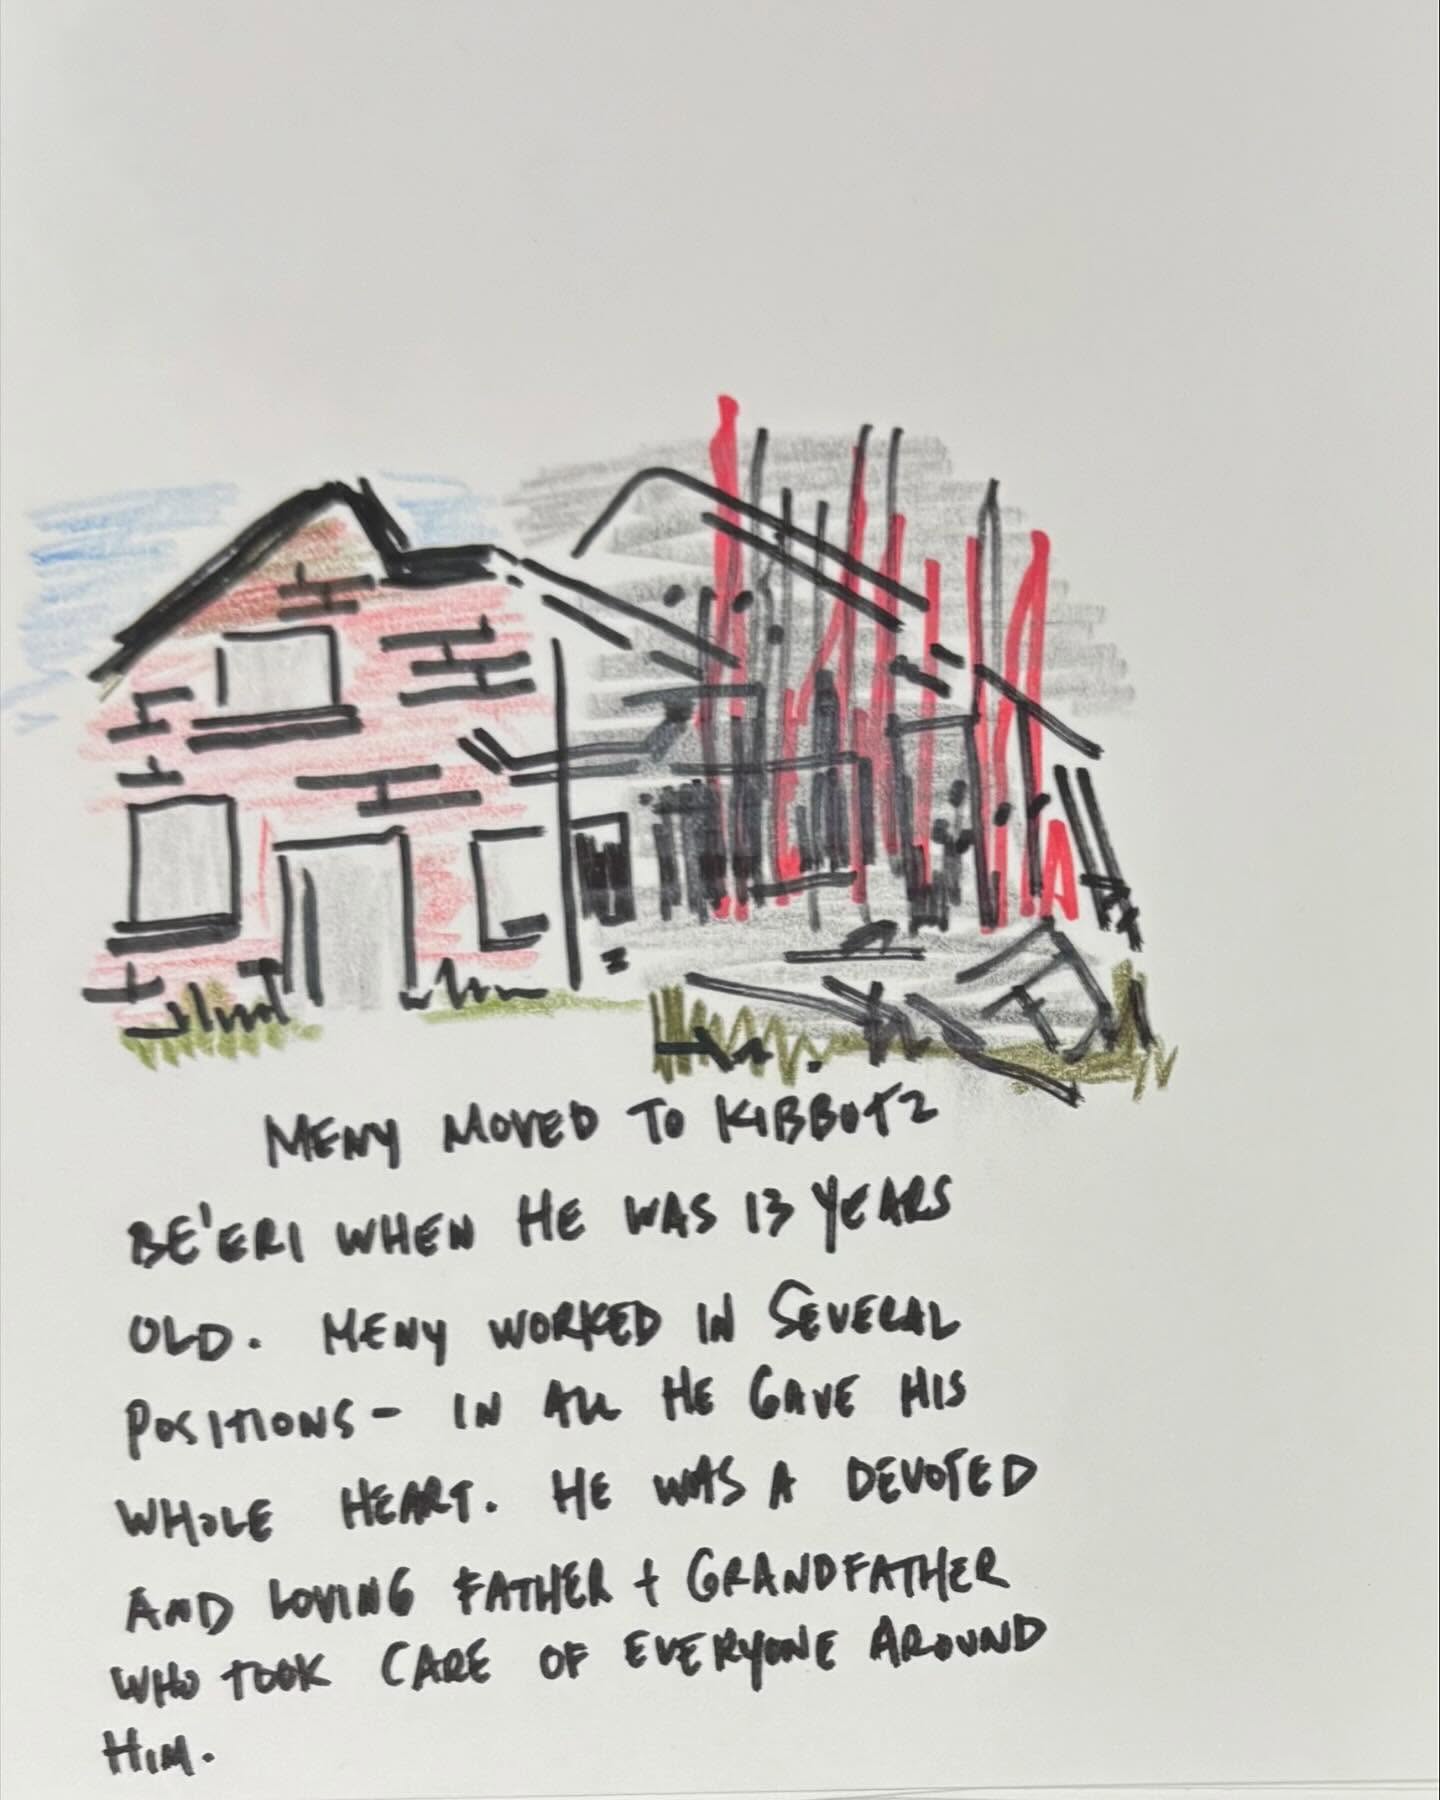 MENY MOVED TO KIBBUTZ
BE'ERI WHEN HE WAS 13 YEARS
OLD. MENY WORKED IN SEVERAL
POSITIONS - IN ALL HE GAVE HIS
WHOLE HEART. HE WAS A DEVOTED
AND LOVING FATHER + GRANDFATHER
WHO TOOK CARE OF EVERYONE AROUND
HIM.